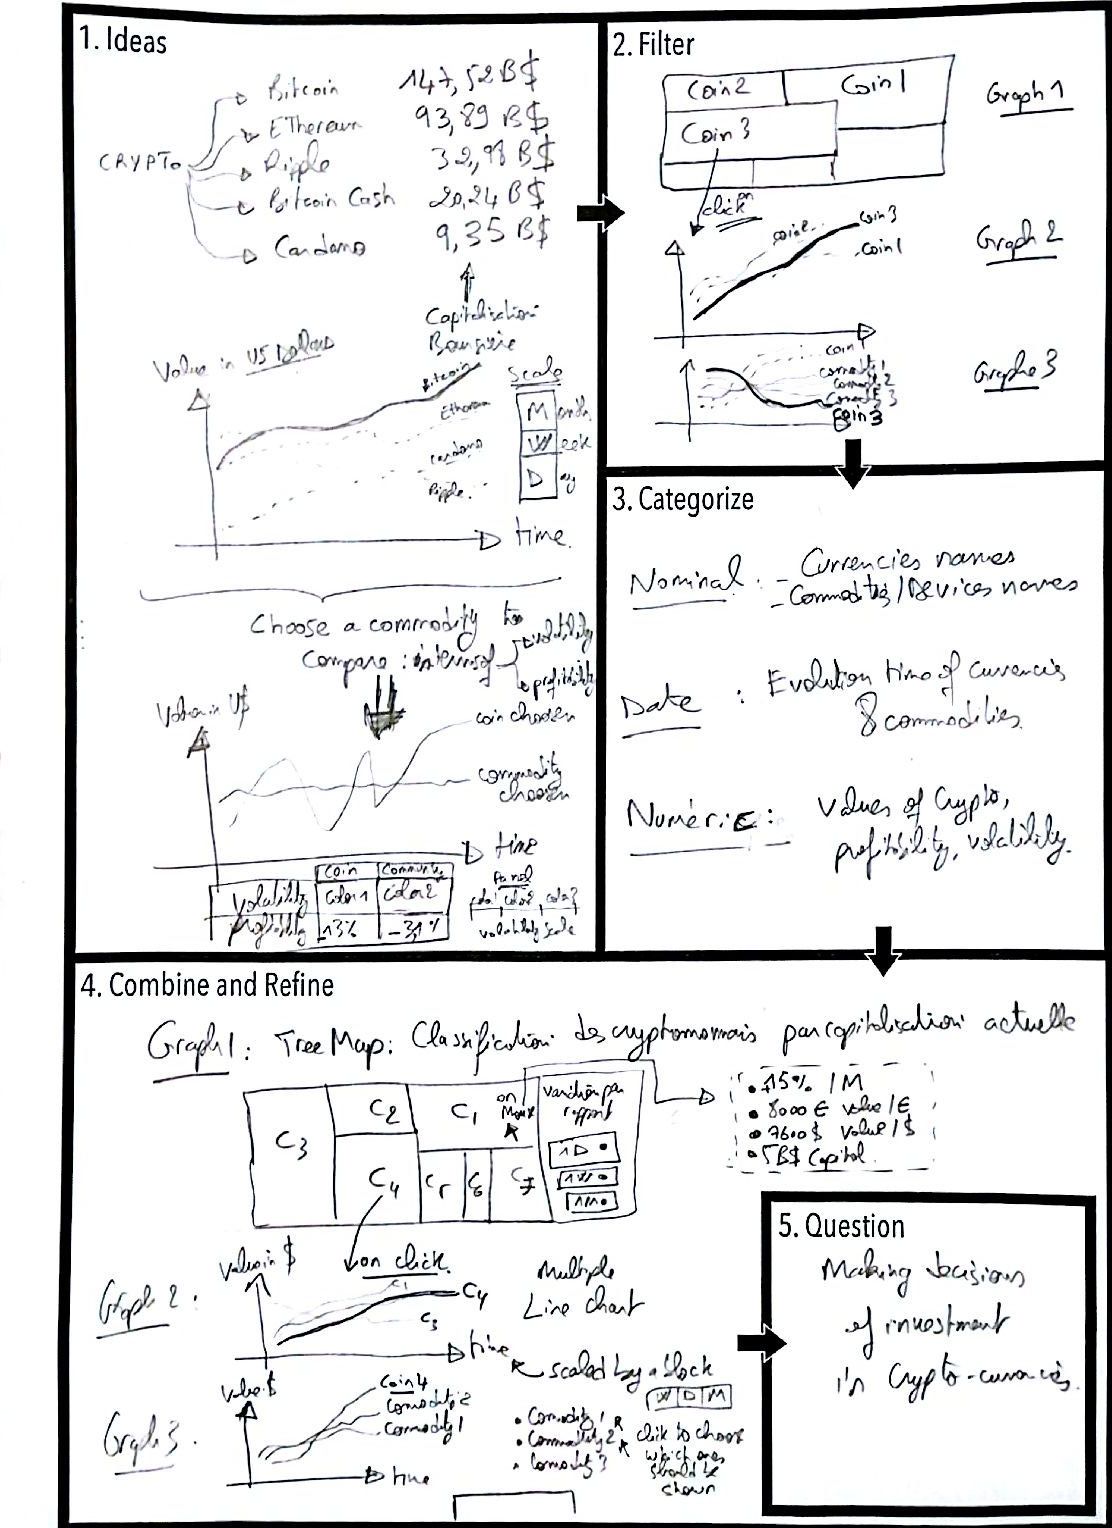 1. Ideas
CRYPTO
Bitcoin 147,52 B$
Ethereum 93,89 B$
Ripple 32,98 B$
Bitcoin Cash 20,24 B$
Cardano 9,35 B$
Capitalisation
Boursière
Value in US Dollars
Bitcoin
Ethereum
Cardano
Ripple
Scale
Month
Week
Day
time
Choose a commodity to
Compare : in terms of
volatility
profitability
Value in U$
coin choosen
commodity
choosen
time
coin
volatility color1 color2
profitability 13% -31%
Panel
color1 color2 color3
volatility scale
2. Filter
Coin2
Coin1
Coin3
Graph1
click on
coin2
coin3
coin1
Graph2
coin4
commodity1
commodity2
commodity3
Coin3
Graphe3
3. Categorize
Nominal : - Currencies names
- Commodities / Devices names
Date : Evolution time of currencies
& commodities
Numeric : values of Crypto,
profitability, volatility.
4. Combine and Refine
Graph1: TreeMap: Classification des cryptomonnais par capitalisation actuelle
C3
C2
C1
C4
C5
C6
C7
on
Mouse
variation par
rapport
1D
1W
1M
15% / M
8000 € value / €
7600 $ value / $
5B$ Capital
on click
Graph2:
Value in $
C1
C4
C3
time
Multiple
Line chart
scaled by a block
W D M
Graph3.
Value $
Coin4
Commodity2
Commodity1
time
Commodity1
Commodity2
Commodity3
click to choose
which ones
should be
shown
5. Question
Making decisions
of investment
in Crypto-currencies.